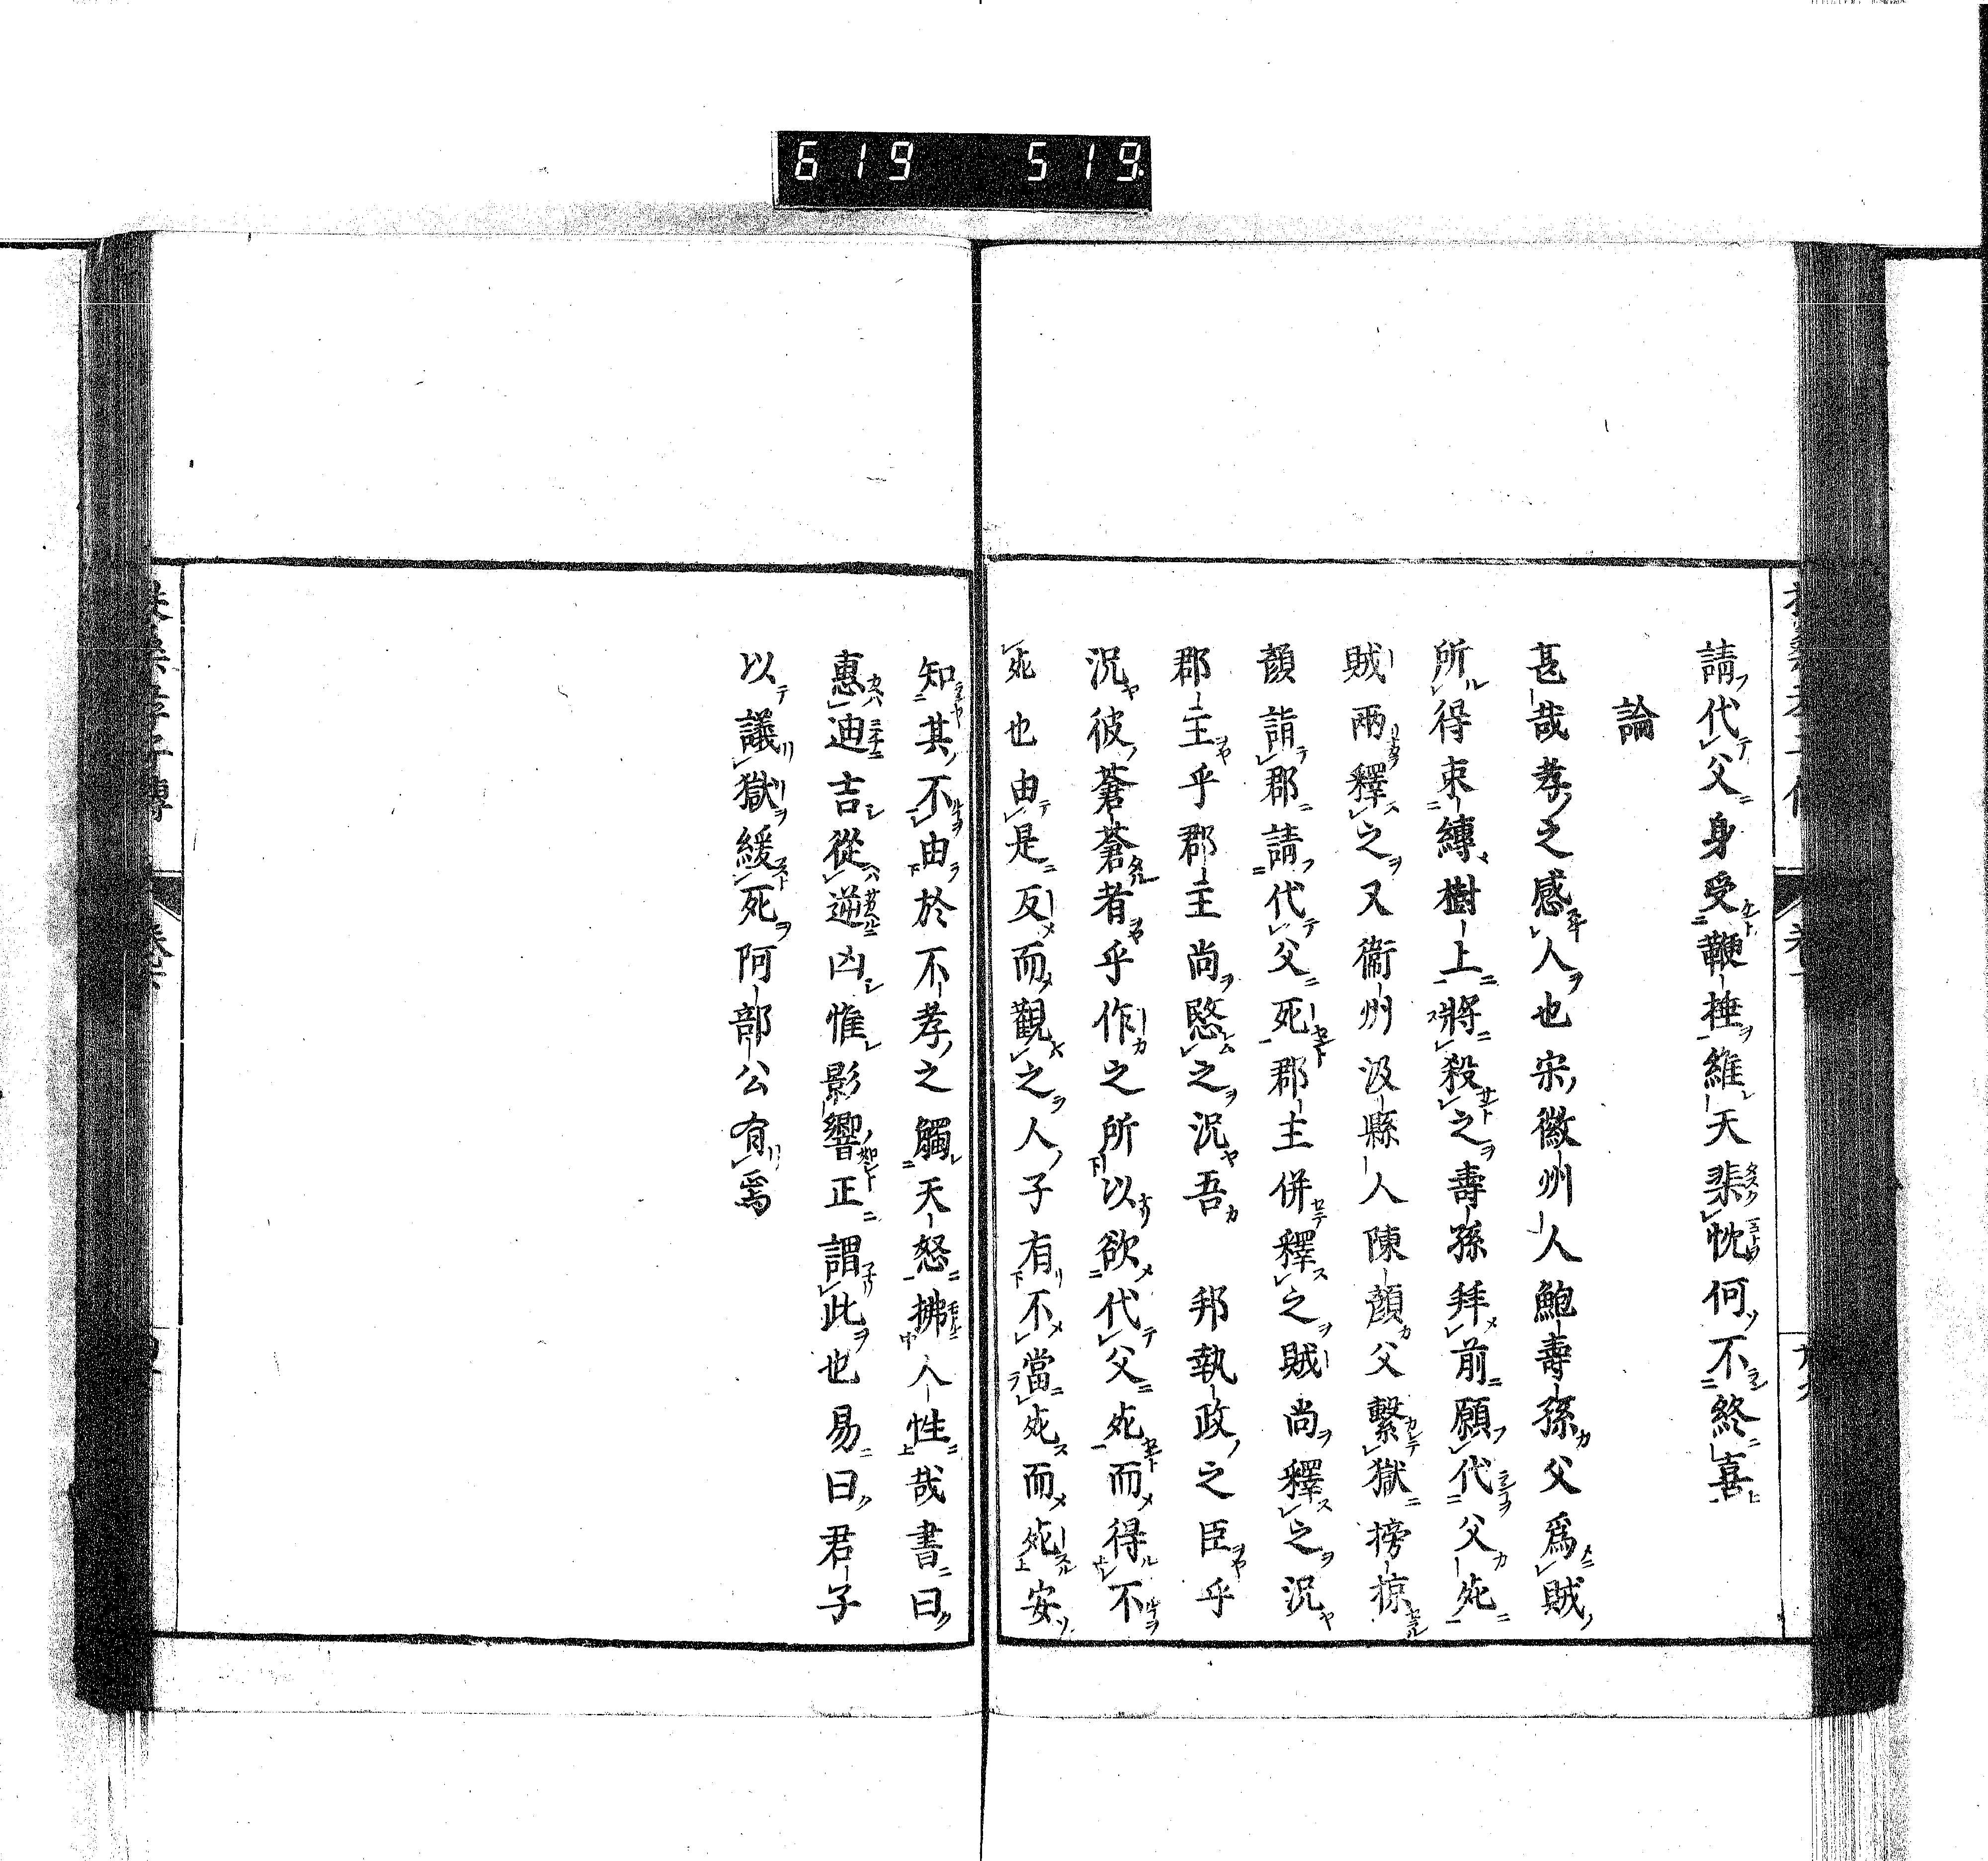 619 519
請代父身受鞭捶維天棐忱何不終喜
論
甚哉孝之感人也宋徽州人鮑壽孫父爲賊
所得束縛樹上將殺之壽孫拜前願代父死
賊兩釋之又衞州汲縣人陳顏父繫獄搒掠
顏詣郡請代父死郡主併釋之賊尚釋之況
郡主乎郡主尚愍之況吾 邦執政之臣乎
況彼蒼蒼者乎作之所以欲代父死而得不
死也由是反而觀之人子有不當死而死安
知其不由於不孝之觸天怒拂人性哉書曰
惠迪吉從逆凶惟影響正謂此也易曰君子
以議獄緩死阿部公有焉